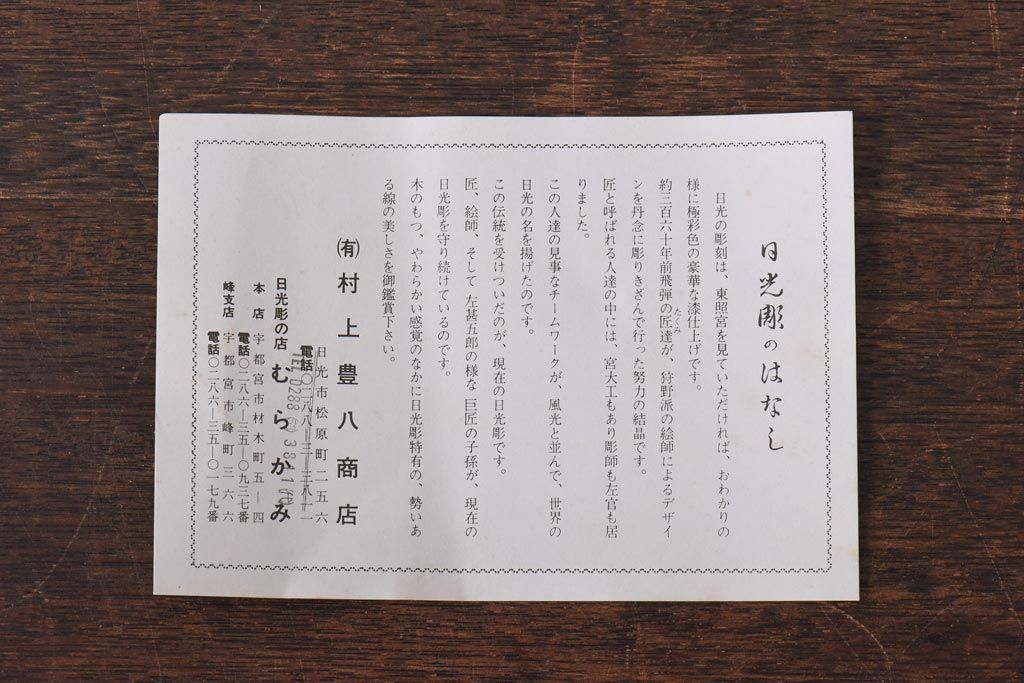 日光彫のはなし
日光の彫刻は、東照宮を見ていただければ、おわかりの
様に極彩色の豪華な漆仕上げです。
約三百六十年前飛弾の匠達が、狩野派の絵師によるデザイ
たくみ
ンを丹念に彫りきざんで行った努力の結晶です。
匠と呼ばれる人達の中には、宮大工もあり彫師も左官も居
りました。
この人達の見事なチームワークが、風光と並んで、世界の
日光の名を揚げたのです。
この伝統を受けついだのが、現在の日光彫です。
匠、絵師、そして 左甚五郎の様な 巨匠の子孫が、現在の
日光彫を守り続けているのです。
木のもつ、やわらかい感覚のなかに日光彫特有の、勢いあ
る線の美しさを御鑑賞下さい。
㈲村上豊八商店
日光市松原町二五六
電話〇二八八―三―三八一一
TEL 0288 53 381
日光彫の店 むらかみ
本店 宇都宮市材木町五―四
電話〇二八六―三五―〇九三七番
峰支店 宇都宮市峰町三六六
電話〇二八六―三五―〇一七九番